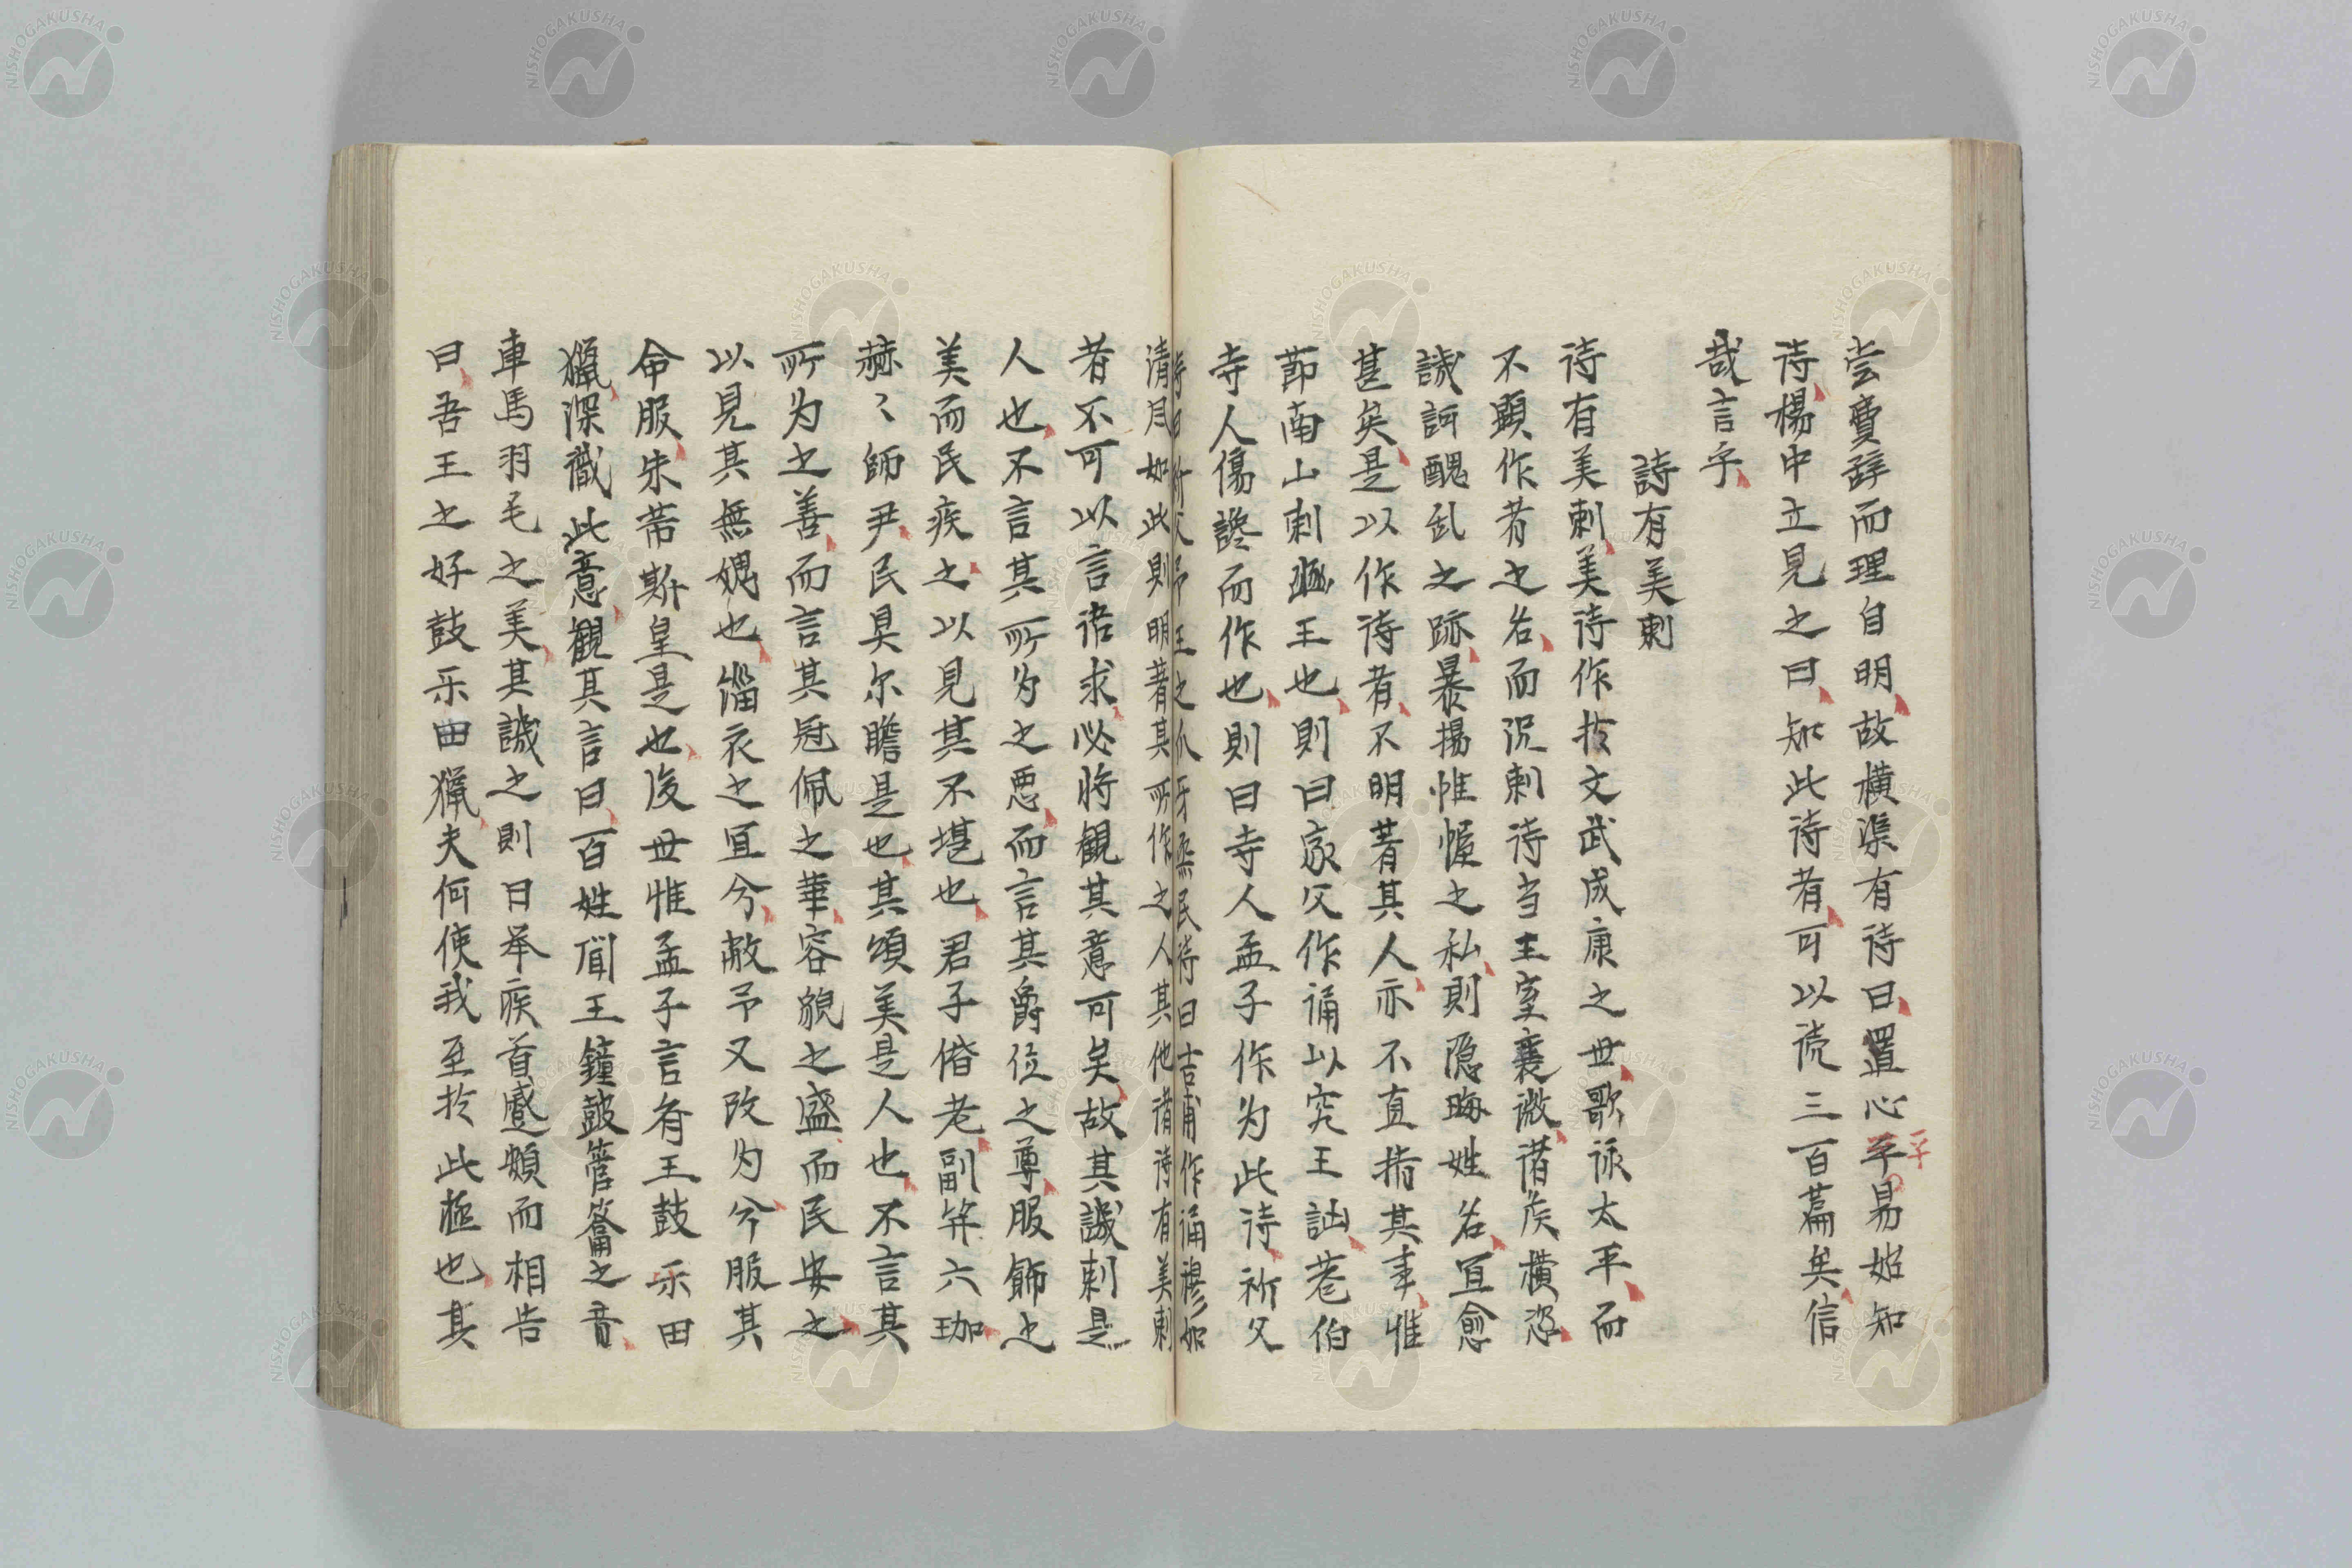 尝費辞而理自明故横渠有诗曰置心平易始知
诗楊中立見之曰知此诗者可以読三百篇矣信
哉言乎
詩有美刺
诗有美刺美诗作扵文武成康之世歌詠太平而
不顕作者之名而況刺诗当王室衰微诸侯横恣
譏訶醜乱之跡暴揚帷幄之私則隠晦姓名宜愈
甚矣是以作诗者不明著其人亦不直指其事惟
莭南山刺幽王也則曰家父作誦以究王訩巷伯
寺人傷讒而作也則曰寺人孟子作为此诗祈父
诗曰祈父予王之爪牙烝民诗曰吉甫作誦穆如
清风如此則明著其所作之人其他诸诗有美刺
者不可以言语求必将観其意可矣故其譏刺是
人也不言其所为之悪而言其爵位之尊服飾之
美而民疾之以見其不堪也君子偕老副笄六珈
赫〻師尹民具尔瞻是也其頌美是人也不言其
所为之善而言其冠佩之華容貌之盛而民安之
以見其無媿也緇衣之宜兮敝予又改为兮服其
命服朱芾斯皇是也後世惟孟子言斉王鼓乐田
獵深識此意観其言曰百姓聞王鐘鼓管籥之音
車馬羽毛之美其譏之則曰举疾首蹙頞而相告
曰吾王之好鼓乐田獵夫何使我至扵此極也其
乎
NISHOGAKUSHA